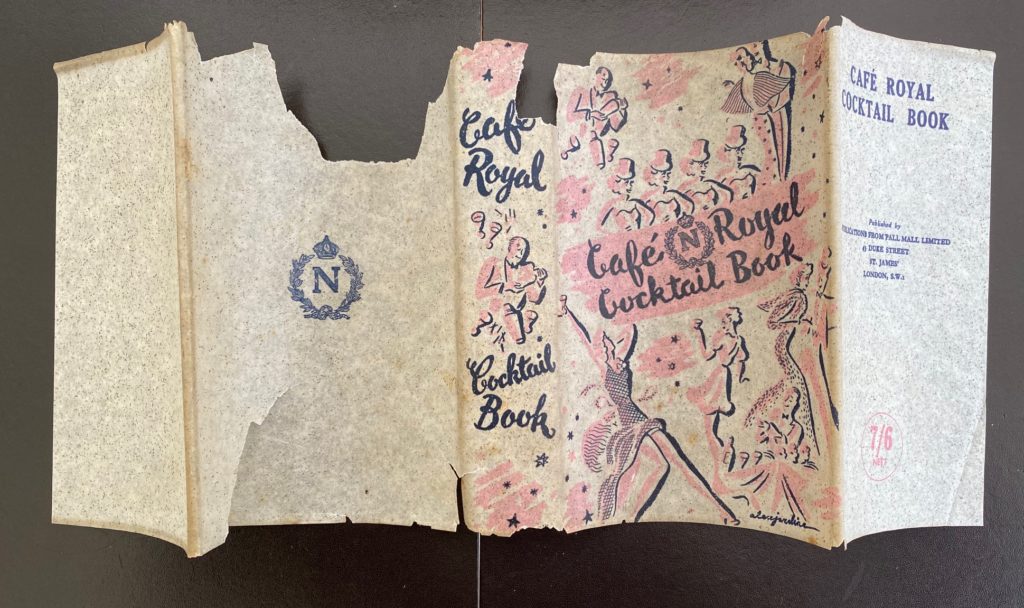 N
Café
Royal
Cocktail
Book
Café N Royal
Cocktail Book
alexjardine
CAFÉ ROYAL
COCKTAIL BOOK
Published by
BLICATIONS FROM PALL MALL LIMITED
DUKE STREET
ST. JAMES'
LONDON, S.W.1
7/6
NET